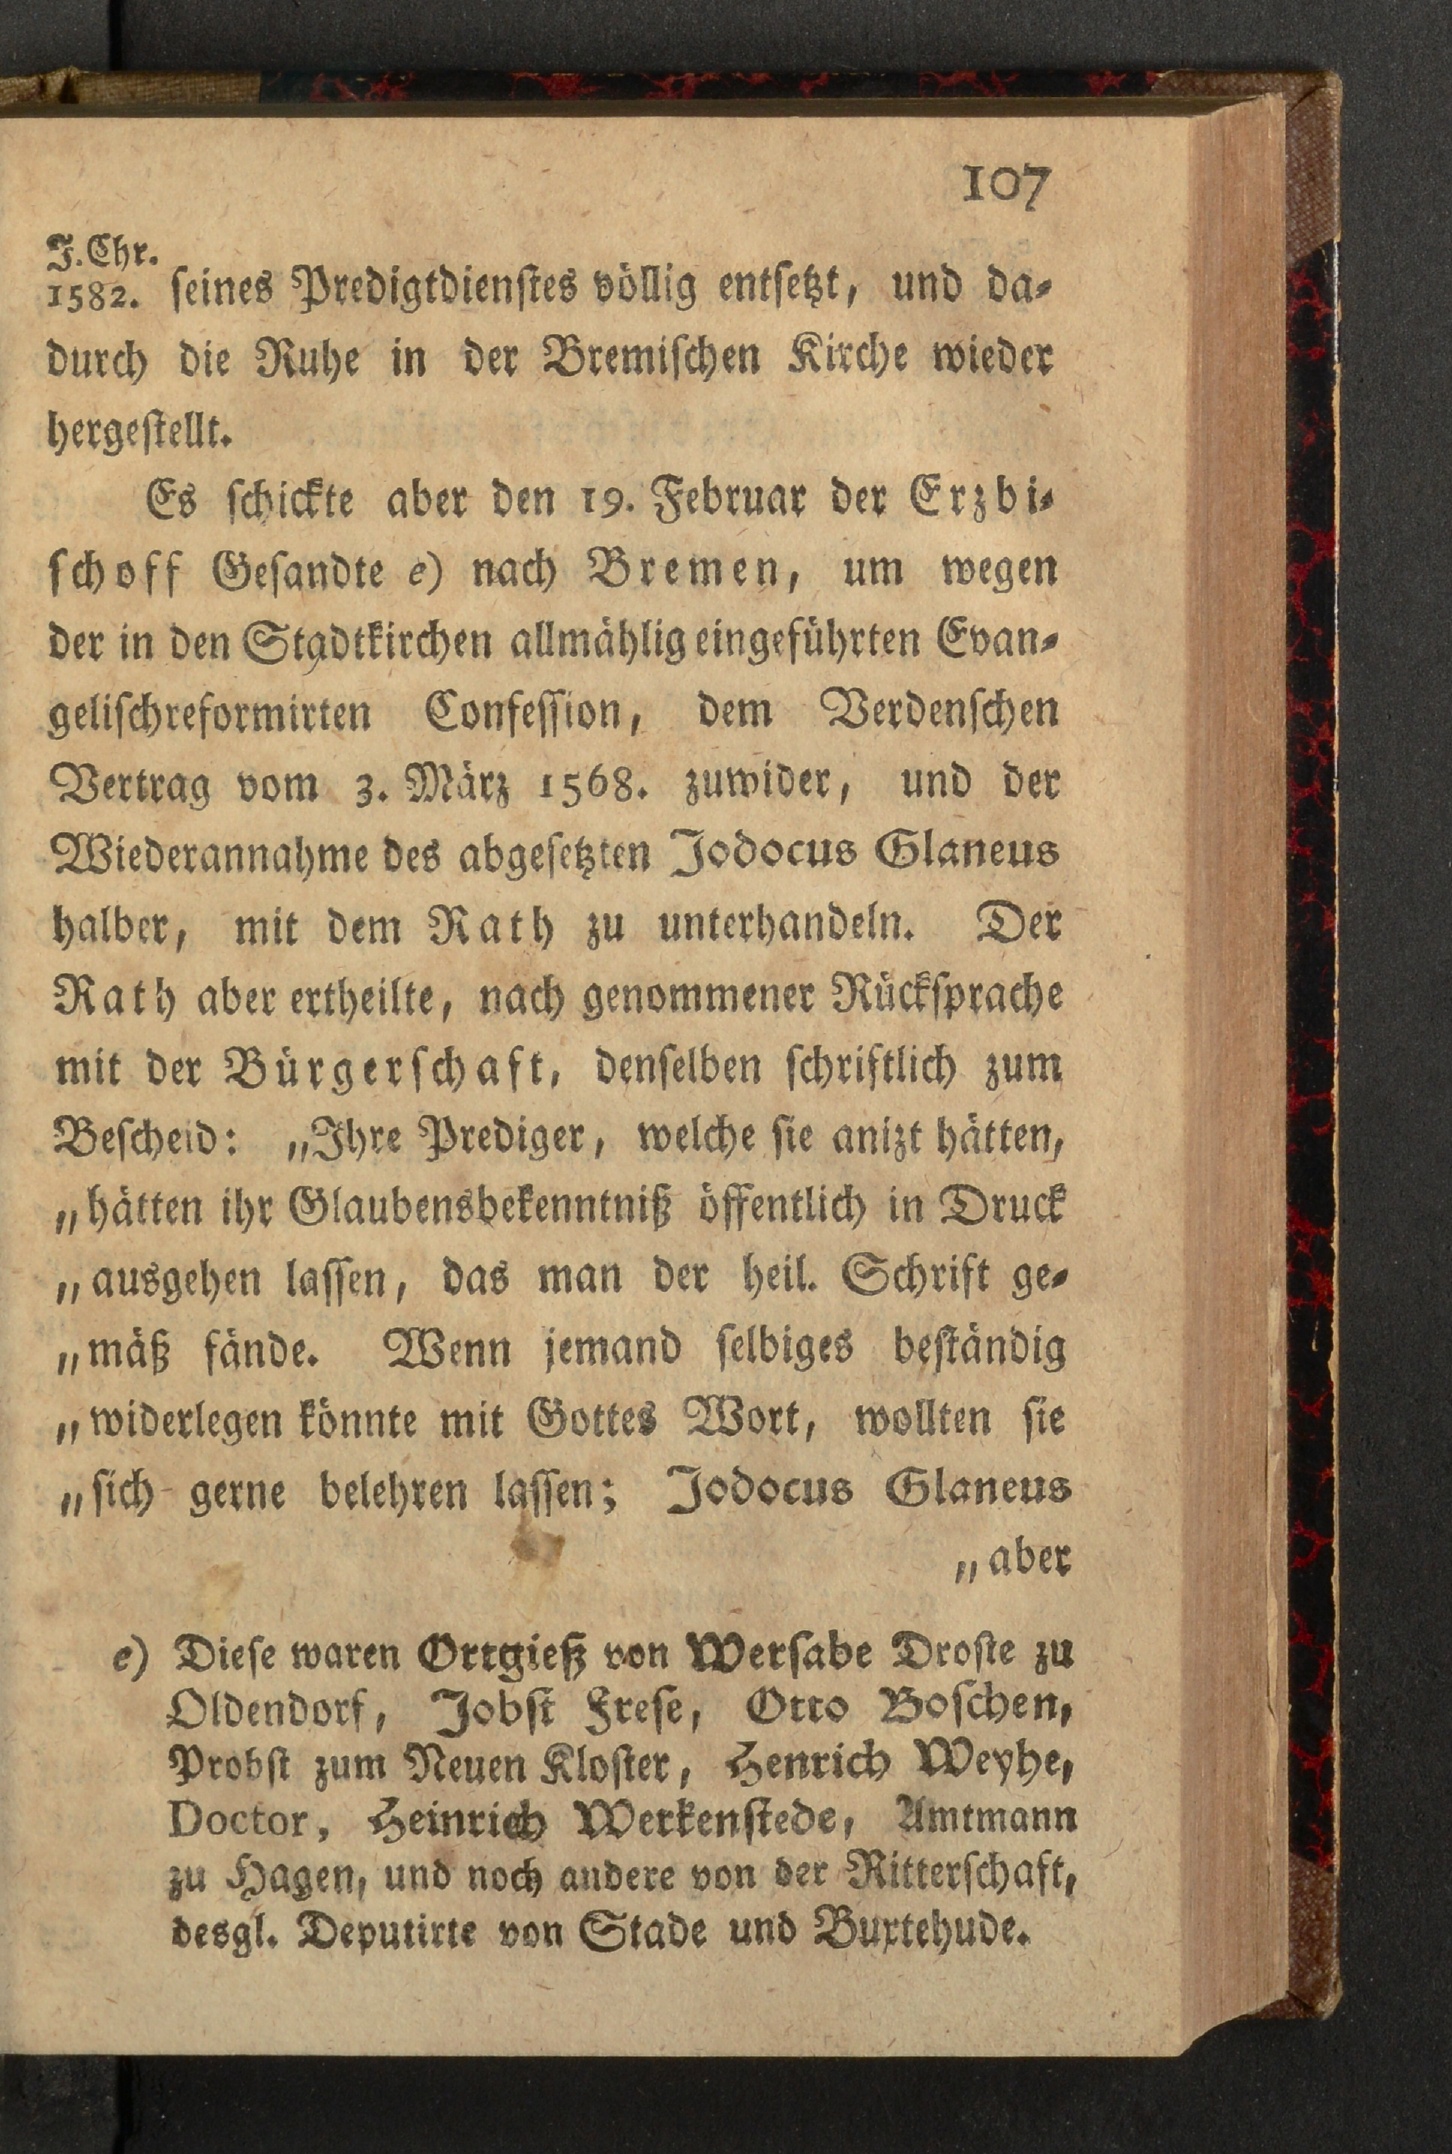 107
J. Chr.
1582. seines Predigtdienstes völlig entsetzt, und da-
durch die Ruhe in der Bremischen Kirche wieder
hergestellt.
Es schickte aber den 19. Februar der Erzbi-
schoff Gesandte e) nach Bremen, um wegen
der in den Stadtkirchen allmählig eingeführten Evan-
gelischreformirten Confession, dem Verdenschen
Vertrag vom 3. März 1568. zuwider, und der
Wiederannahme des abgesetzten Jodocus Glaneus
halber, mit dem Rath zu unterhandeln. Der
Rath aber ertheilte, nach genommener Rücksprache
mit der Bürgerschaft, denselben schriftlich zum
Bescheid: „Ihre Prediger, welche sie anizt hätten,
„hätten ihr Glaubensbekenntniß öffentlich in Druck
„ausgehen lassen, das man der heil. Schrift ge-
„mäß fände. Wenn jemand selbiges beständig
„widerlegen könnte mit Gottes Wort, wollten sie
„sich gerne belehren lassen; Jodocus Glaneus
„aber
e) Diese waren Ortgieß von Wersabe Droste zu
Oldendorf, Jobst Frese, Otto Boschen,
Probst zum Neuen Kloster, Henrich Weyhe,
Doctor, Heinrich Werkenstede, Amtmann
zu Hagen, und noch andere von der Ritterschaft,
desgl. Deputirte von Stade und Buxtehude.